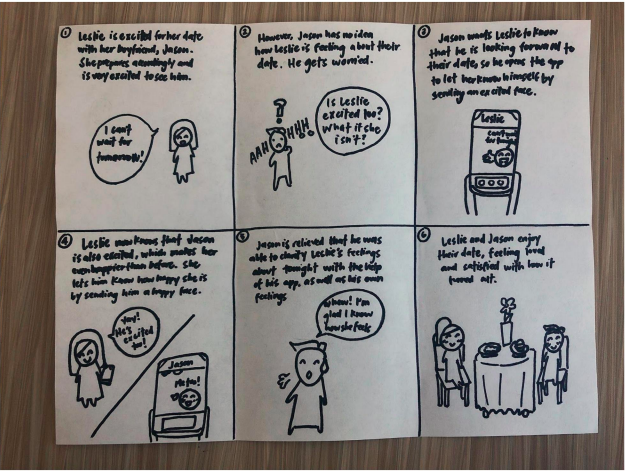 ①
Leslie is excited for her date
with her boyfriend, Jason.
She prepares accordingly and
is very excited to see him.
I can't
wait for
tomorrow!
②
However, Jason has no idea
how Leslie is feeling about their
date. He gets worried.
?
AAH HHH
Is Leslie
excited too?
What if she
isn't?
③
Jason wants Leslie to know
that he is looking forward to
their date, so he opens the app
to let her know himself by
sending an excited face.
Leslie
can't wait
④
Leslie now knows that Jason
is also excited, which makes her
even happier than before. She
lets him know how happy she is
by sending him a happy face.
Yay!
He's
excited
too!
Jason
Me too!
⑤
Jason is relieved that he was
able to clarify Leslie's feelings
about tonight with the help
of his app, as well as his own
feelings
whew! I'm
glad I know
how she feels
⑥
Leslie and Jason enjoy
their date, feeling loved
and satisfied with how it
turned out.